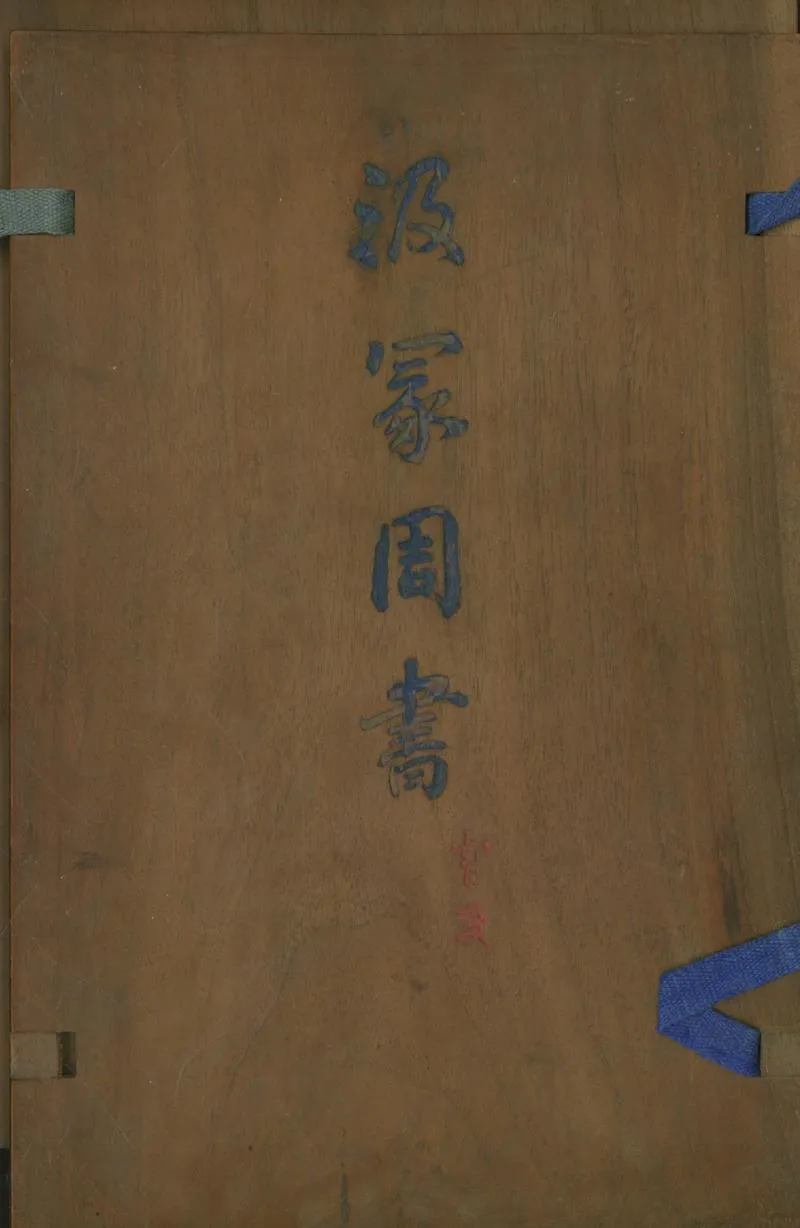 汲冢周書